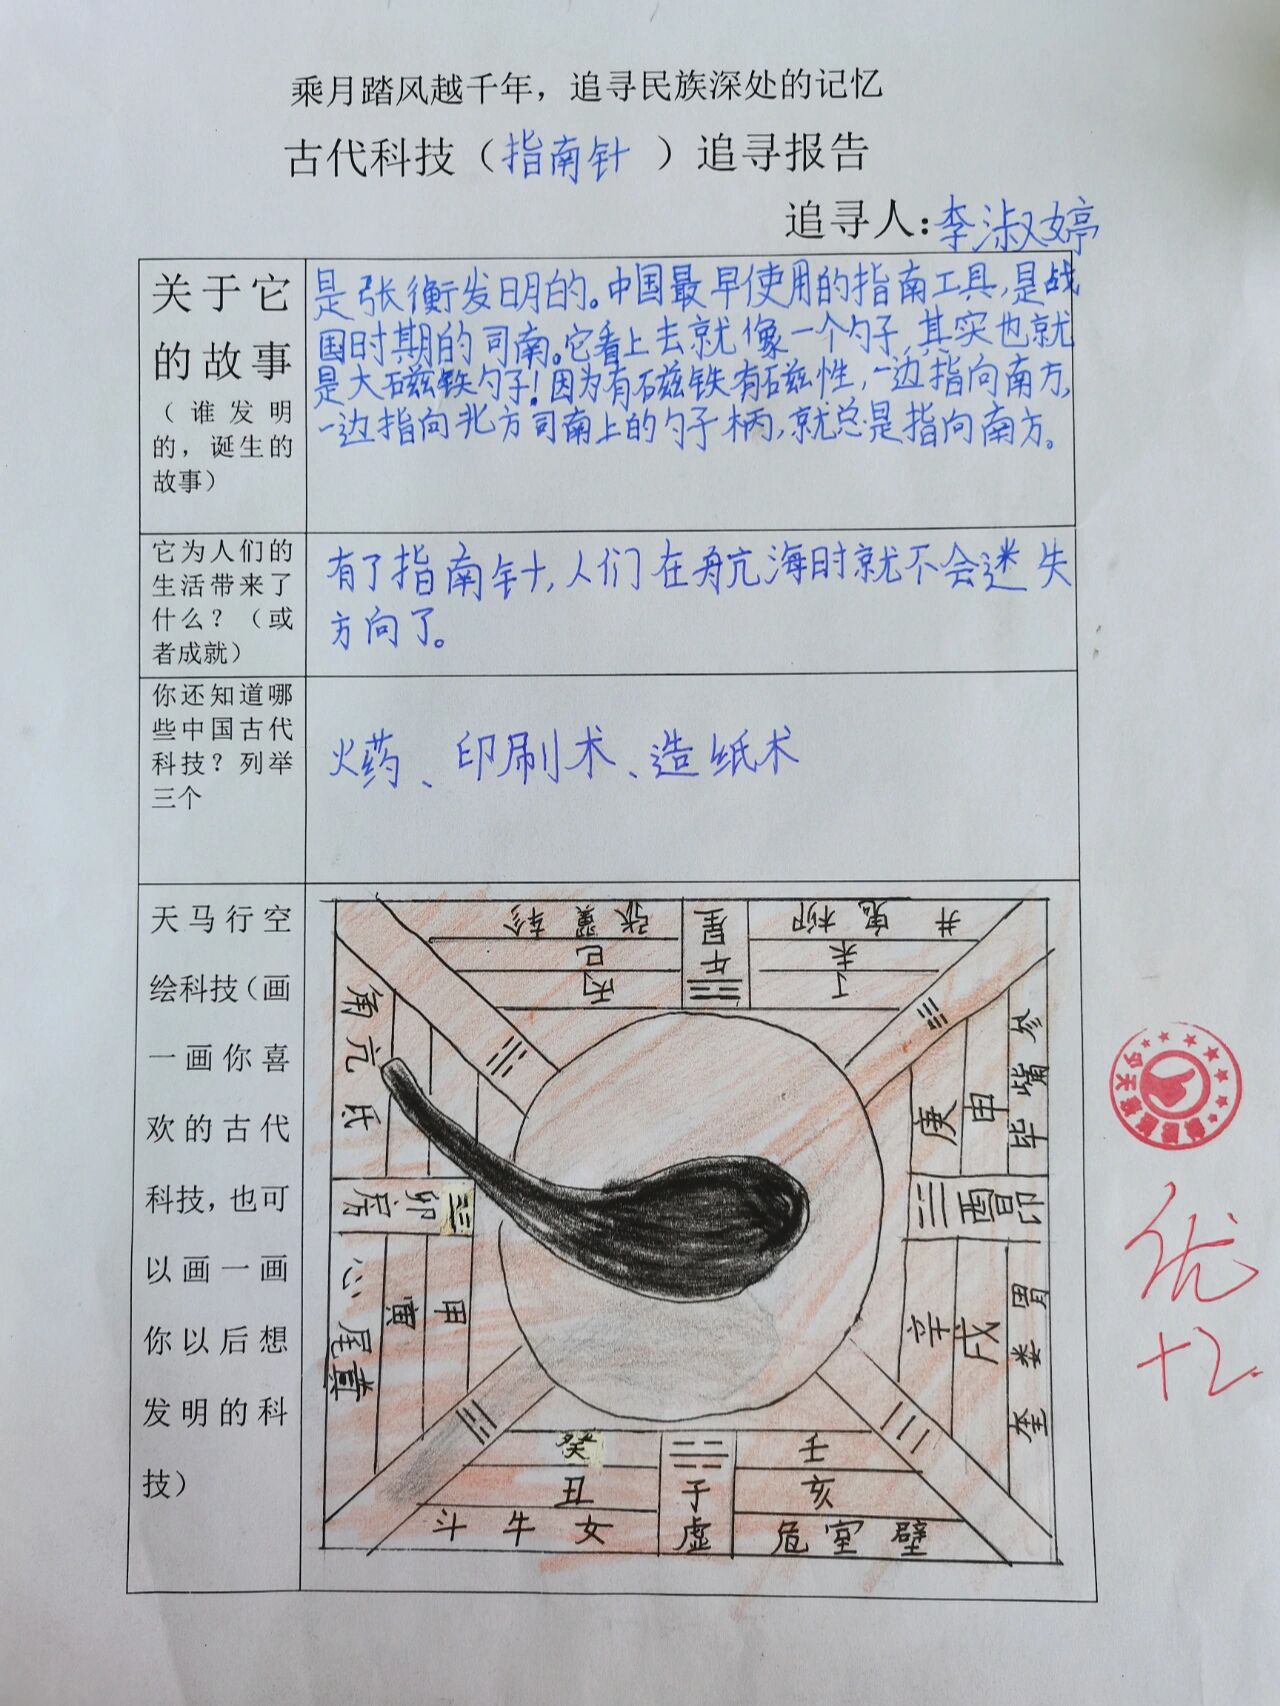 乘月踏风越千年，追寻民族深处的记忆
古代科技（指南针）追寻报告
追寻人：李淑婷
关于它
的故事
（谁发明
的，诞生的
故事）
是张衡发明的。中国最早使用的指南工具，是战
国时期的司南。它看上去就像一个勺子，其实也就
是大磁铁勺子！因为有磁铁有磁性，一边指向南方，
一边指向北方司南上的勺子柄，就总是指向南方。
它为人们的
生活带来了
什么？（或
者成就）
有了指南针，人们在航海时就不会迷失
方向了。
你还知道哪
些中国古代
科技？列举
三个
火药、印刷术、造纸术
天马行空
绘科技（画
一画你喜
欢的古代
科技，也可
以画一画
你以后想
发明的科
技）
轸翼张
巳
丙
星
午
井鬼柳
未
丁
角亢氐
房卯
心尾
寅
甲
参觜毕
申
庚
酉
胃娄奎
戌
辛
癸
丑
斗牛女
子
虚
壬
亥
危室壁
优
+2